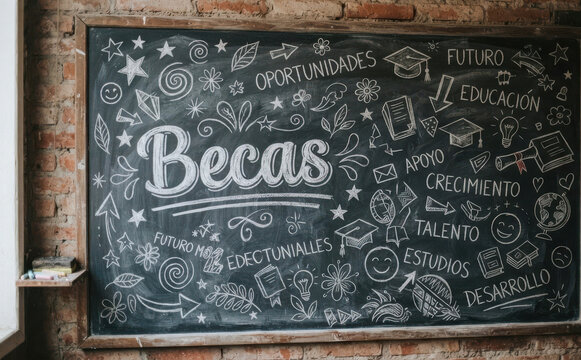 OPORTUNIDADES
FUTURO
EDUCACIÓN
Becas
APOYO
CRECIMIENTO
TALENTO
FUTURO
EDECTUNIALLES
ESTUDIOS
DESARROLLO